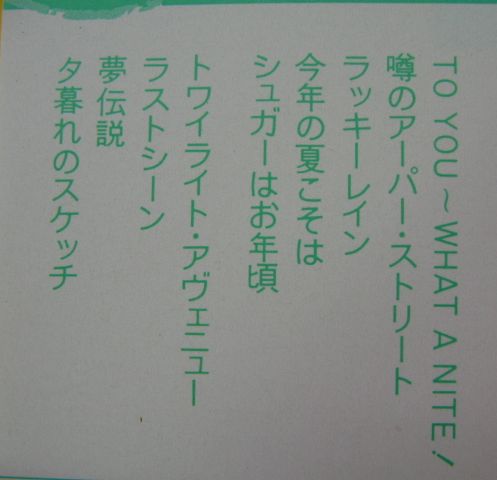 TO YOU ~ WHAT A NITE!
噂のアーパー・ストリート
ラッキーレイン
今年の夏こそは
シュガーはお年頃
トワイライト・アヴェニュー
ラストシーン
夢伝説
夕暮れのスケッチ